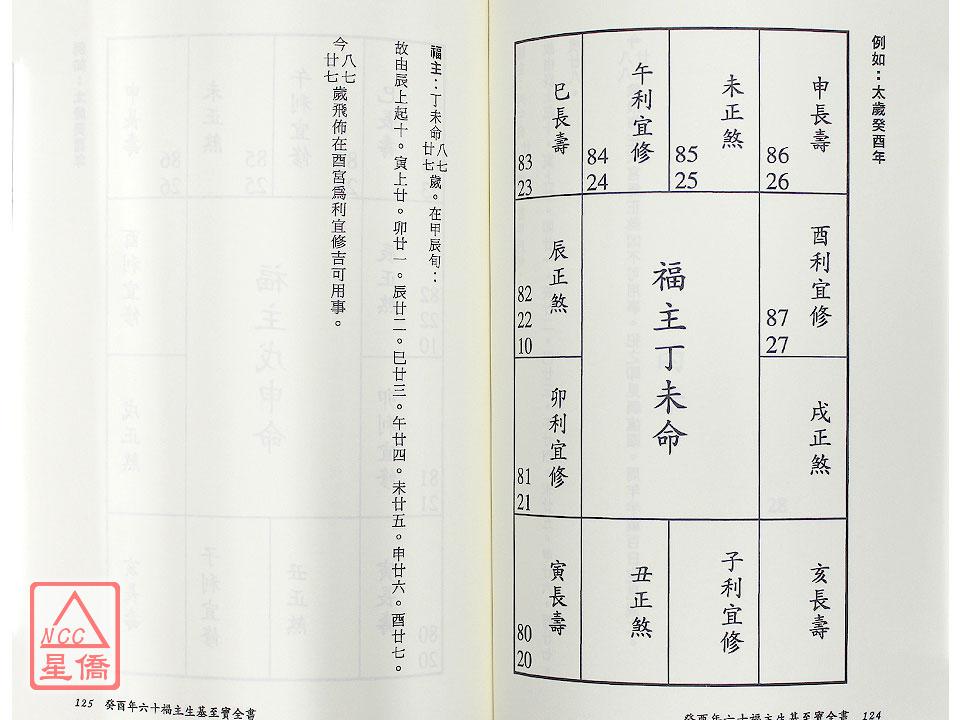 例如：太歲癸酉年
申長壽
86
26
未正煞
85
25
午利宜修
84
24
巳長壽
83
23
酉利宜修
87
27
福主丁未命
辰正煞
82
22
10
戌正煞
28
卯利宜修
81
21
亥長壽
子利宜修
丑正煞
寅長壽
80
20
癸酉年六十福主生基至寶全書 124
福主：丁未命八七廿七歲。在甲辰旬：
故由辰上起十。寅上廿。卯廿一。辰廿二。巳廿三。午廿四。未廿五。申廿六。酉廿七。
今八七廿七歲飛佈在酉宮為利宜修吉可用事。
125 癸酉年六十福主生基至寶全書
NCC
星僑